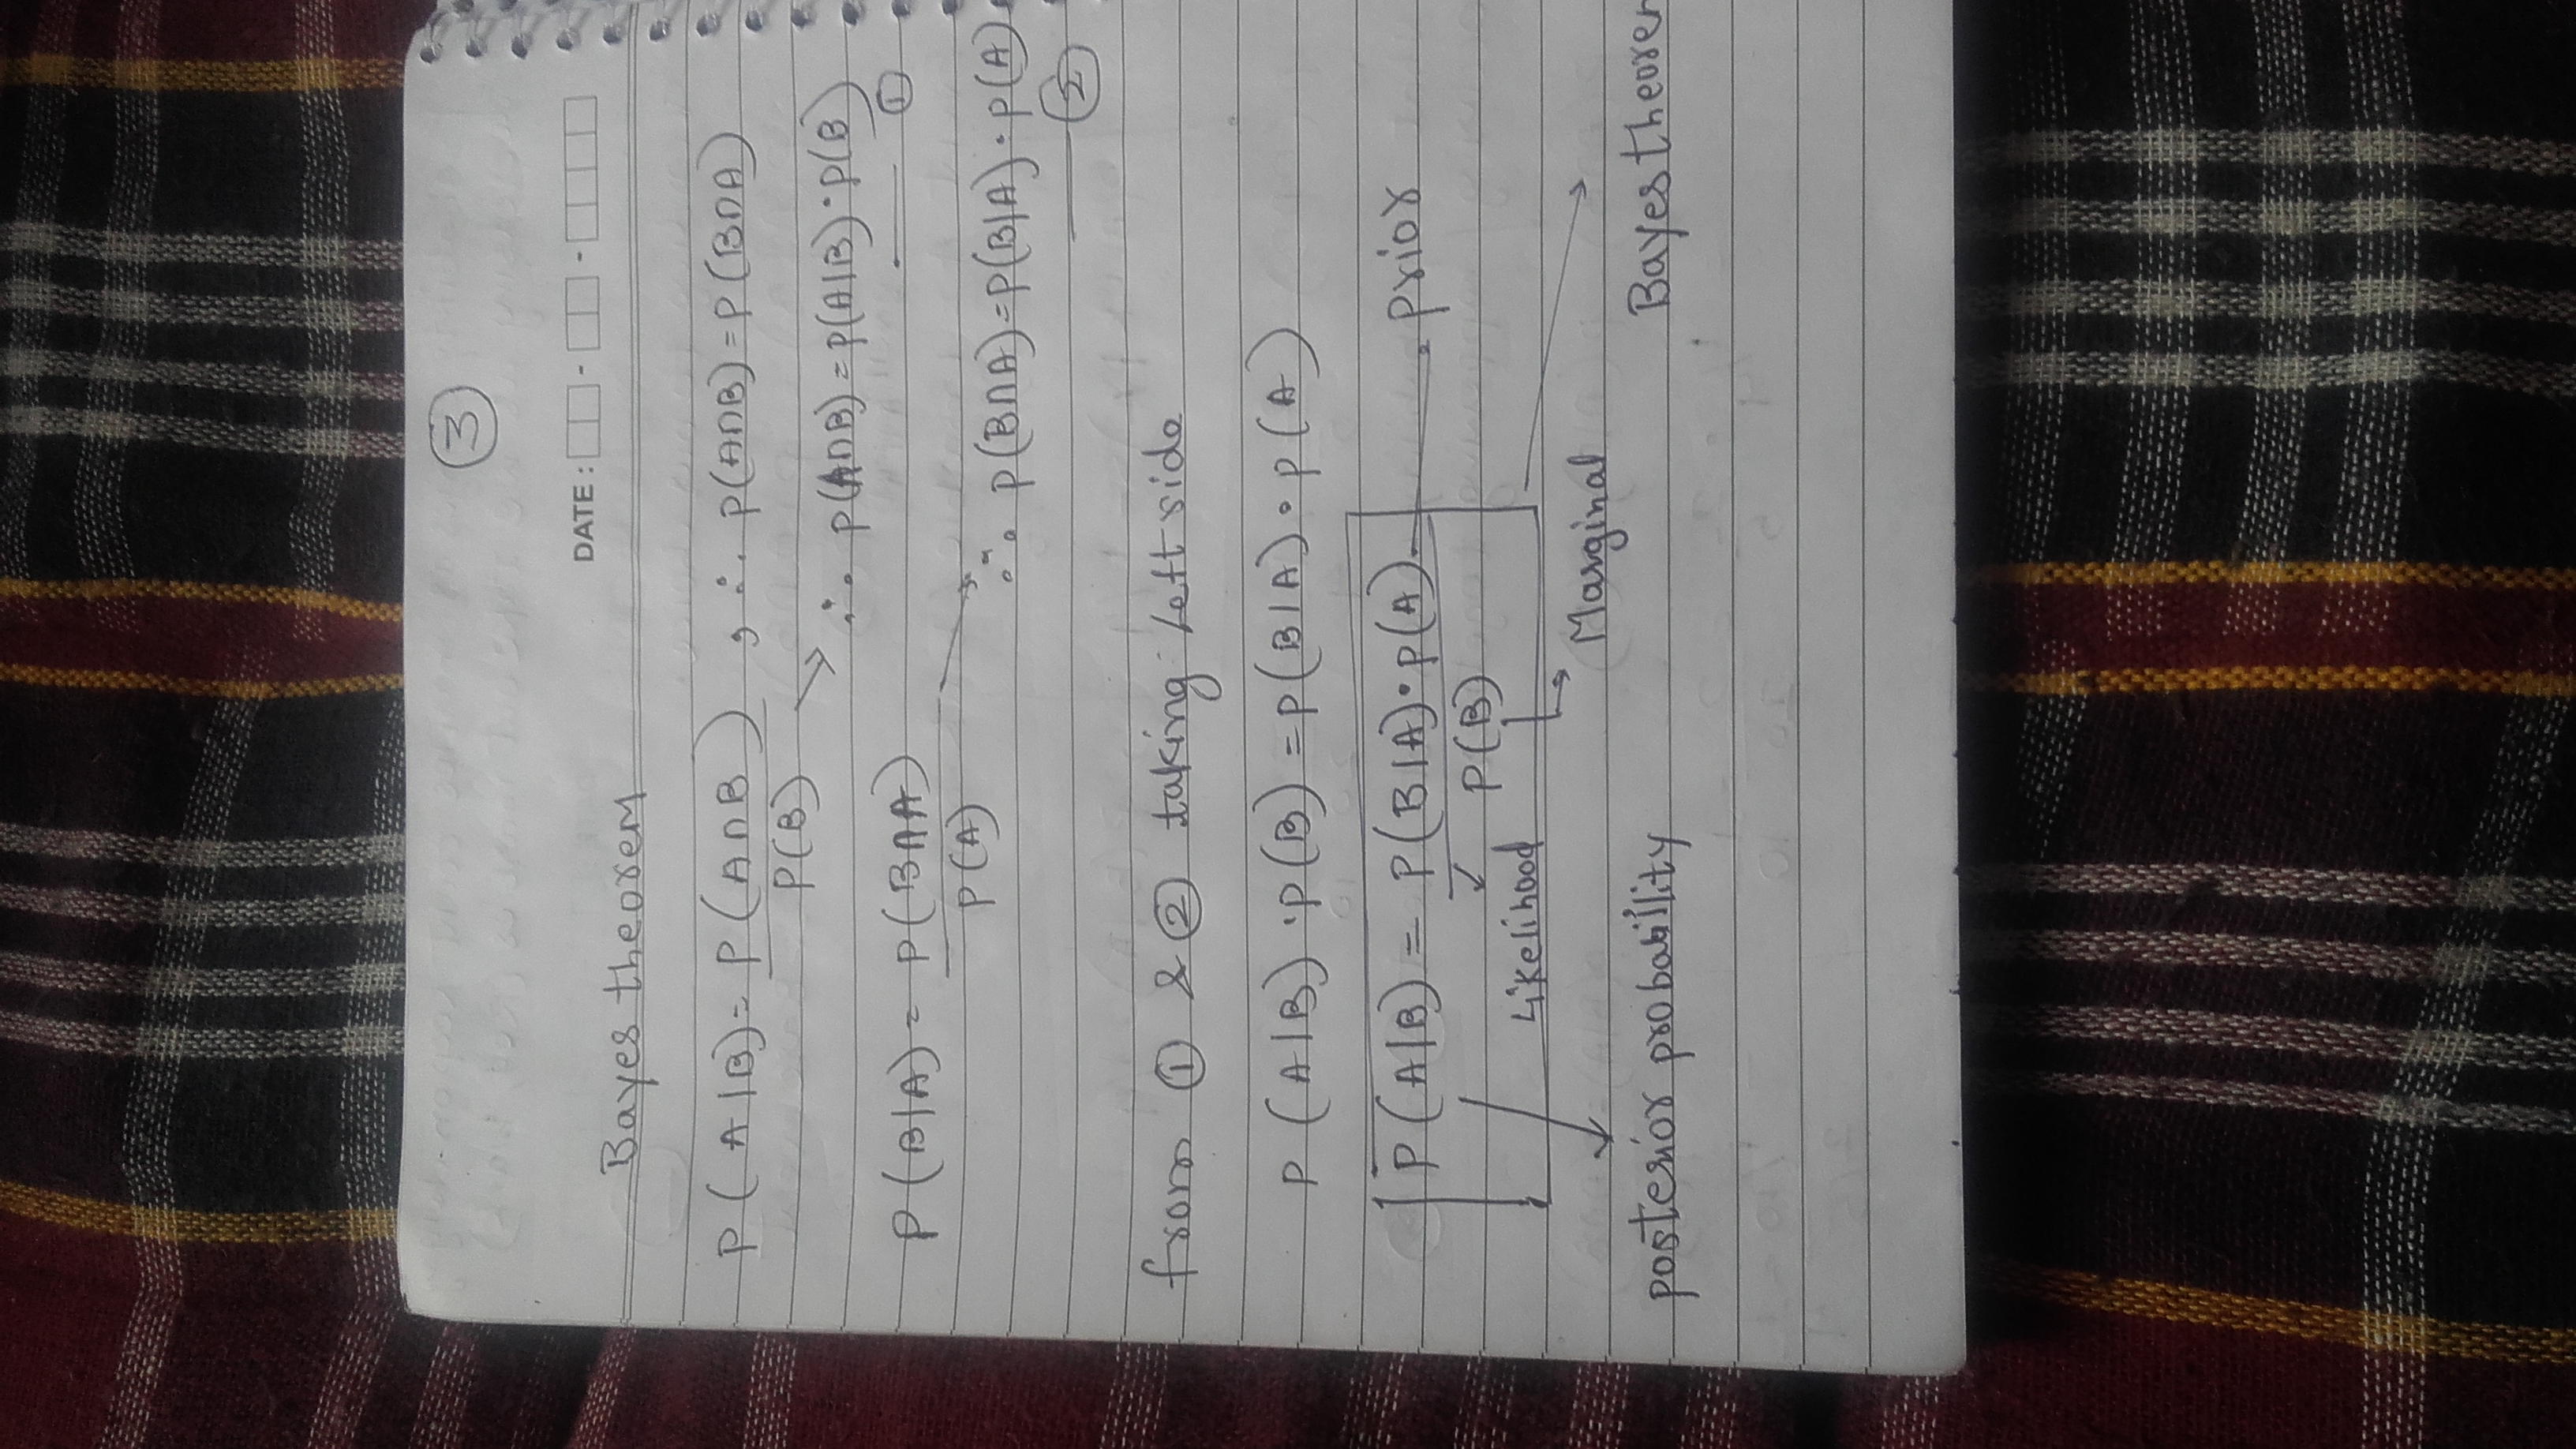 3
DATE :
Bayes theorem
P(A|B) = P(A∩B) / P(B) , ∴ P(A∩B) = P(B∩A)
∴ P(A∩B) = P(A|B) · P(B)
①
P(B|A) = P(B∩A) / P(A)
∴ P(B∩A) = P(B|A) · P(A)
②
from ① & ② taking Left side
P(A|B) · P(B) = P(B|A) · P(A)
P(A|B) = P(B|A) · P(A) / P(B)
prior
Likelihood
Marginal
posterior probability
Bayes theorem